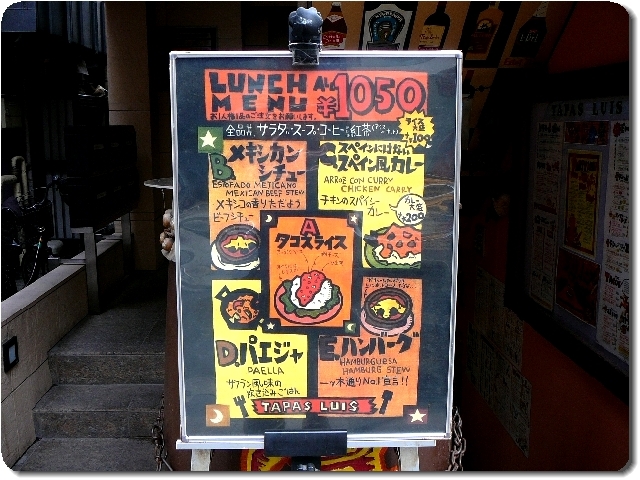 LUNCH MENU ALL ¥1050
お1人様1品のご注文をお願いします。
全品共、サラダ・スープ・コーヒーか紅茶
ライス大盛 +¥100
B.メキシカンシチュー
ESTOFADO METICANO
MEXICAN BEEF STEW
メキシコの香りただよう
ビーフシチュー
C.スペインにはない
スペイン風カレー
ARROZ CON CURRY
CHICKEN CARRY
チキンのスパイシー
カレー
カレー大盛 +¥200
A
タコスライス
D.パエジャ
PAELLA
サフラン風味の
炊き込みごはん
E.ハンバーグ
HAMBURGUESA
HAMBURG STEW
一ツ木通りNo.1宣言!!
TAPAS LUIS
TAPAS LUIS